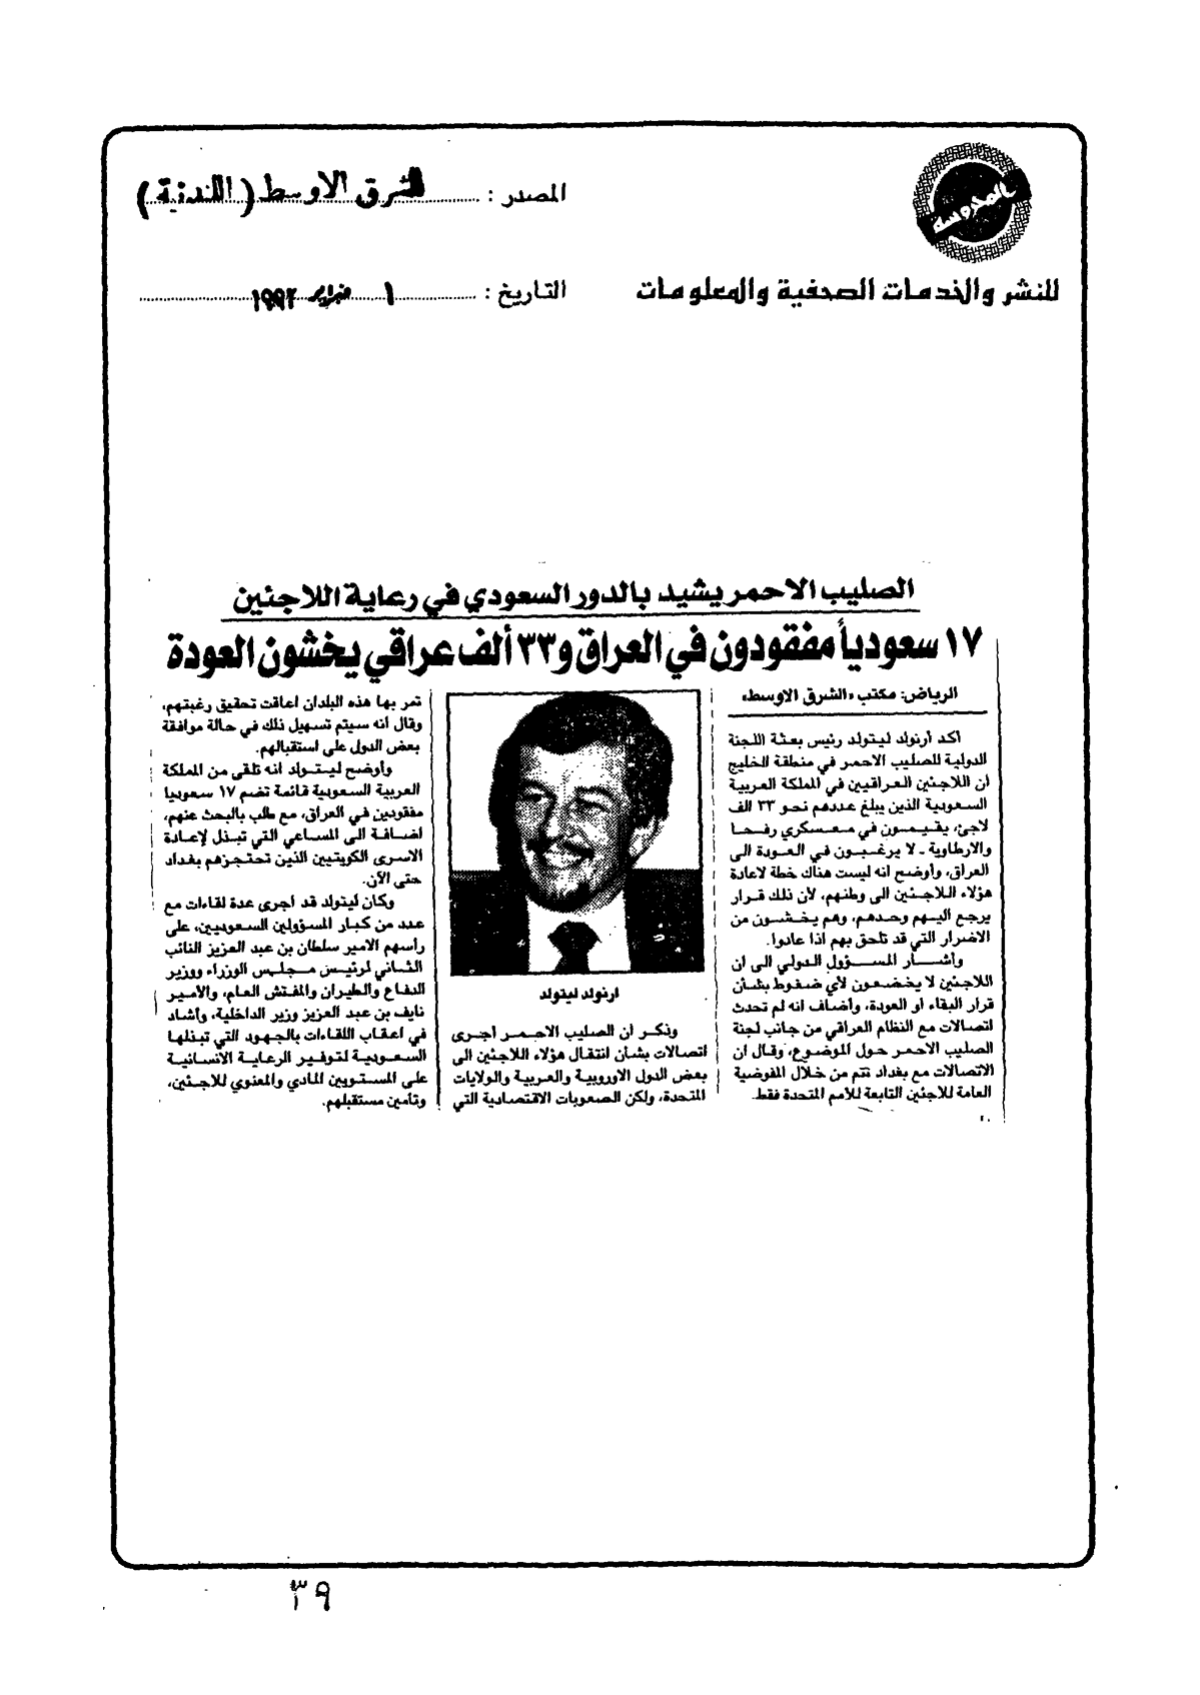 المحروسة
للنشر والخدمات الصحفية والمعلومات
المصدر : الشرق الاوسط (اللندنية)
التاريخ : ١ فبراير ١٩٩٢
الصليب الاحمر يشيد بالدور السعودي في رعاية اللاجئين
١٧ سعودياً مفقودون في العراق و٣٣ ألف عراقي يخشون العودة
الرياض: مكتب «الشرق الاوسط»
اكد أرنولد ليتولد رئيس بعثة اللجنة
الدولية للصليب الاحمر في منطقة الخليج
ان اللاجئين العراقيين في المملكة العربية
السعودية الذين يبلغ عددهم نحو ٣٣ الف
لاجئ، يقيمون في معسكري رفحا
والارطاوية ـ لا يرغبون في العودة الى
العراق، وأوضح انه ليست هناك خطة لاعادة
هؤلاء اللاجئين الى وطنهم، لأن ذلك قرار
يرجع اليهم وحدهم، وهم يخشون من
الاضرار التي قد تلحق بهم اذا عادوا.
وأشار المسؤول الدولي الى ان
اللاجئين لا يخضعون لأي ضغوط بشأن
قرار البقاء او العودة، وأضاف انه لم تحدث
اتصالات مع النظام العراقي من جانب لجنة
الصليب الاحمر حول الموضوع، وقال ان
الاتصالات مع بغداد تتم من خلال المفوضية
العامة للاجئين التابعة للأمم المتحدة فقط.
ارنولد ليتولد
وذكر ان الصليب الاحمر أجرى
اتصالات بشأن انتقال هؤلاء اللاجئين الى
بعض الدول الاوروبية والعربية والولايات
المتحدة، ولكن الصعوبات الاقتصادية التي
تمر بها هذه البلدان اعاقت تحقيق رغبتهم،
وقال أنه سيتم تسهيل ذلك في حالة موافقة
بعض الدول على استقبالهم.
وأوضح ليتولد انه تلقى من المملكة
العربية السعودية قائمة تضم ١٧ سعوديا
مفقودين في العراق، مع طلب بالبحث عنهم،
اضافة الى المساعي التي تبذل لإعادة
الاسرى الكويتيين الذين تحتجزهم بغداد
حتى الآن.
وكان ليتولد قد اجرى عدة لقاءات مع
عدد من كبار المسؤولين السعوديين، على
رأسهم الامير سلطان بن عبد العزيز النائب
الثاني لرئيس مجلس الوزراء ووزير
الدفاع والطيران والمفتش العام، والأمير
نايف بن عبد العزيز وزير الداخلية، وأشاد
في اعقاب اللقاءات بالجهود التي تبذلها
السعودية لتوفير الرعاية الانسانية
على المستويين المادي والمعنوي للاجئين،
وتأمين مستقبلهم.
٣٩